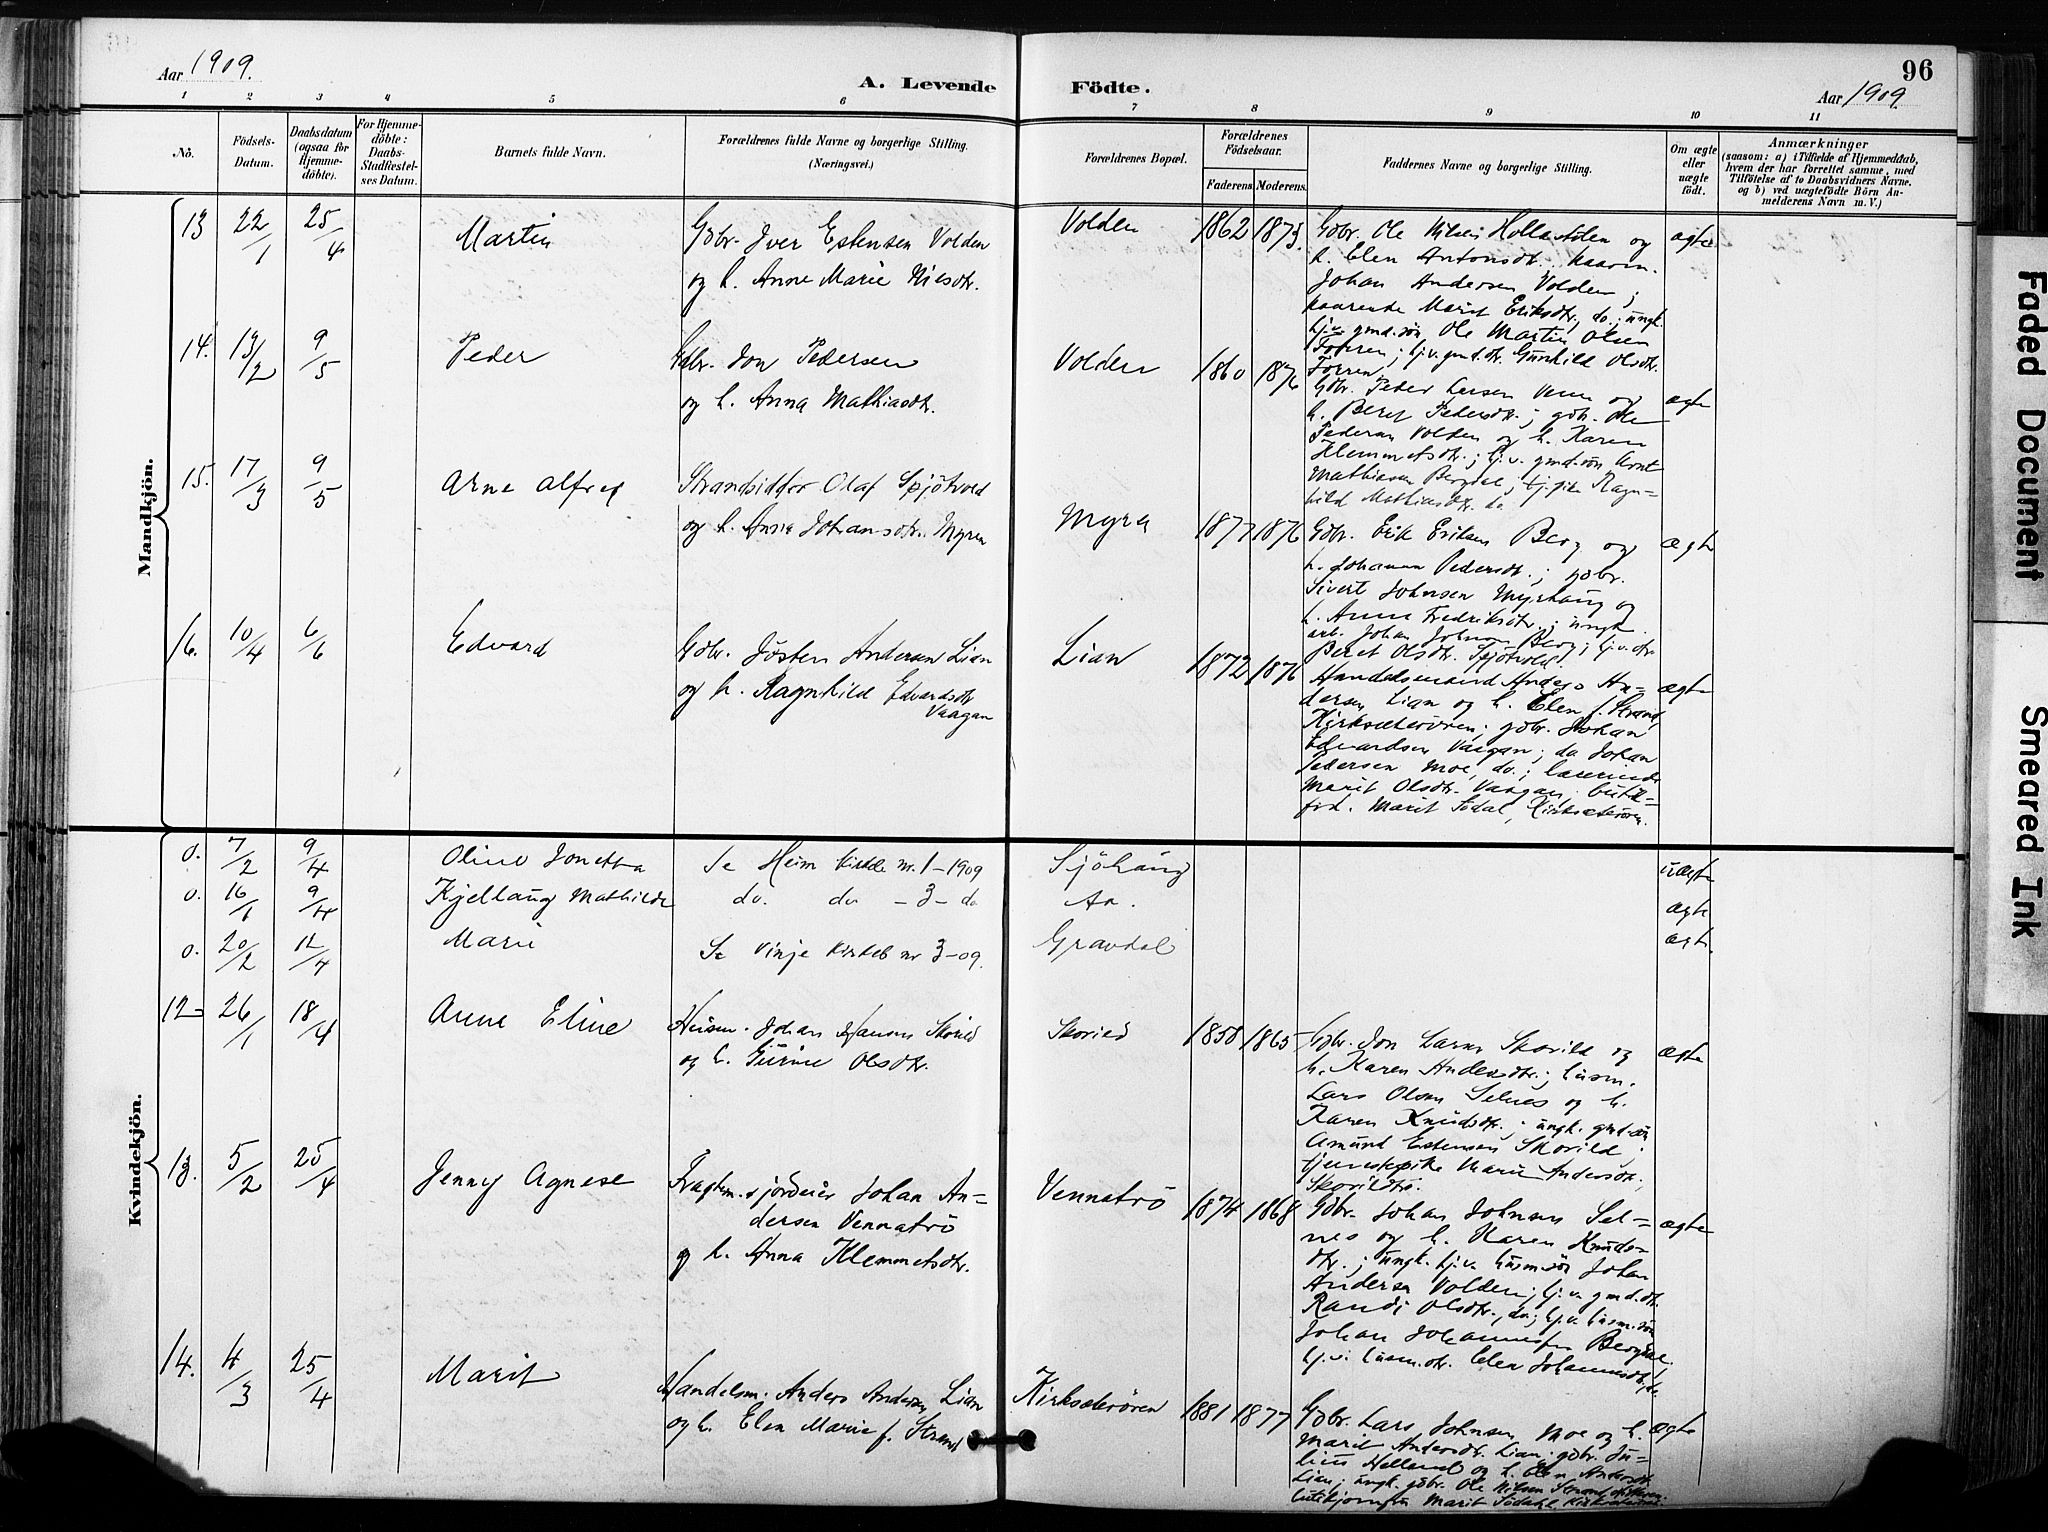 Aar 1909.
A. Levende
Födte.
96
Aar 1909.
1 2 3 4 5 6 7 8 9 10 11
No.
Födsels-Datum.
Daabsdatum (ogsaa for Hjemme-döbte).
For Hjemme-döbte: Daabs-Stadfæstel-ses Datum.
Barnets fulde Navn.
Forældrenes fulde Navne og borgerlige Stilling. (Næringsvei.)
Forældrenes Bopæl.
Forældrenes Födselsaar.
Faderens. Moderens.
Faddernes Navne og borgerlige Stilling.
Om ægte eller uægte födt.
Anmærkninger
(saasom: a) i Tilfælde af Hjemmedaab, hvem der har forrettet samme, med Tilföielse af to Daabsvidners Navne, og b) ved uægtefödte Börn An-melderens Navn m. V.)
Mandkjön.
13 22/1 25/4 Martin
Gdbr. Iver Estensen Volden
og h. Anne Marie Nilsdtr.
Volden 1862 1873.
Gdbr. Ole Nilsen Hollastölen og
h. Elen Antonsdtr. kaarm.
Johan Andersen Volden;
kaarenke Marit Eriksdtr., do.; ungk.
hj.v. gmd.sön Ole Martin Olsen
Forren; hj.v. gmd.dtr. Gunhild Olsdtr.
Forren
ægte
14. 13/2 9/5 Peder
Gdbr. Jon Pedersen
og h. Anna Mathiasdtr.
Volden 1860 1876
Gdbr. Peder Larsen Venn og
h. Beret Pedersdtr.; gdbr. Ole
Pedersen Volden og h. Karen
Klemmetsdtr.; hj.v. gmd.sön Arnt
Mathiasen Bergdal; tj.pike Ragn-
hild Mathiasdtr. do
ægte
15. 17/3 9/5 Arne Alfred
Strandsidder Olaf Spjötvold
og h. Anna Johansdtr. Myren
Myra 1877 1876
Gdbr. Erik Eriksen Berg og
h. Johanna Pedersdtr.; gdbr.
Sivert Johnsen Myrhaug og
h. Anne Fredriksdtr.; ungk.
arb. Johan Johnsen Berg; hj.v. dtr.
Beret Olsdtr. Spjötvold.
ægte
16. 10/4 6/6 Edvard
Gdbr. Josten Andersen Lian
og h. Ragnhild Edvardsdtr
Vaagan
Lian 1872 1876
Handelsmand Anders An-
dersen Lian og h. Elen f. Strand,
Kirksæterören; gdbr. Johan
Edvardsen Vaagan; do Johan
Pedersen Moe, do.; lærerinde
Marit Olsdtr. Vaagan; butik-
frk. Marit Södal, Kirksæterören.
ægte
Kvindekjön.
0. 7/2 9/4 Oline Jonetta Se Heim kirkeb nr. 1 – 1909 Sjöhaug uægte
0. 16/1 9/4 Kjellaug Mathilde do. do – 3 – do Aa. ægte
0. 20/2 12/4 Marie Se Vinje Kirkeb nr 3 – 09. Gravdal ægte.
12 26/1 18/4 Anne Eline
Husm. Johan Hansen Skorild
og h. Gurine Olsdtr.
Skorild 1858 1865
Gdbr. Jon Larsen Skorild og
h. Karen Andersdtr.; husm.
Lars Olsen Selnes og h.
Karen Knudsdtr.; ungk. gmd.sön
Amund Estensen Skorild;
tjenestepike Marie Andersdtr.,
ægte
13. 5/2 25/4 Jenny Agnese
Fragtem. & jordeier Johan An-
dersen Vennatrö
og h. Anna Klemmetsdtr.
Vennatrö 1874 1868
Gdbr. Johan Johnsen Sel-
nes og h. Karen Knuds-
dtr.; ungk. hj.v. husm.sön Johan
Andersen Volden; hj.v. gmd.dtr.
Randi Olsdtr., do; hj.v. husm.sön
Johan Johannesen Bergdal.
hj.v. husm.dtr. Elen Johannesdtr., do.
ægte
14. 4/3 25/4 Marit
Handelsm. Anders Andersen Lian
og h. Elen Marie f. Strand
Kirksæterören 1881 1877
Gdbr. Lars Johnsen Moe og h.
Marit Andersdtr. Lian; gdbr. Ju-
lius Helland og h. Elen Andersdtr.
Lian; ungk. gdbr. Ole Nilsen Strand,
Marit Södahl, Kirksæterören.
ægte
Faded Document
Smeared Ink